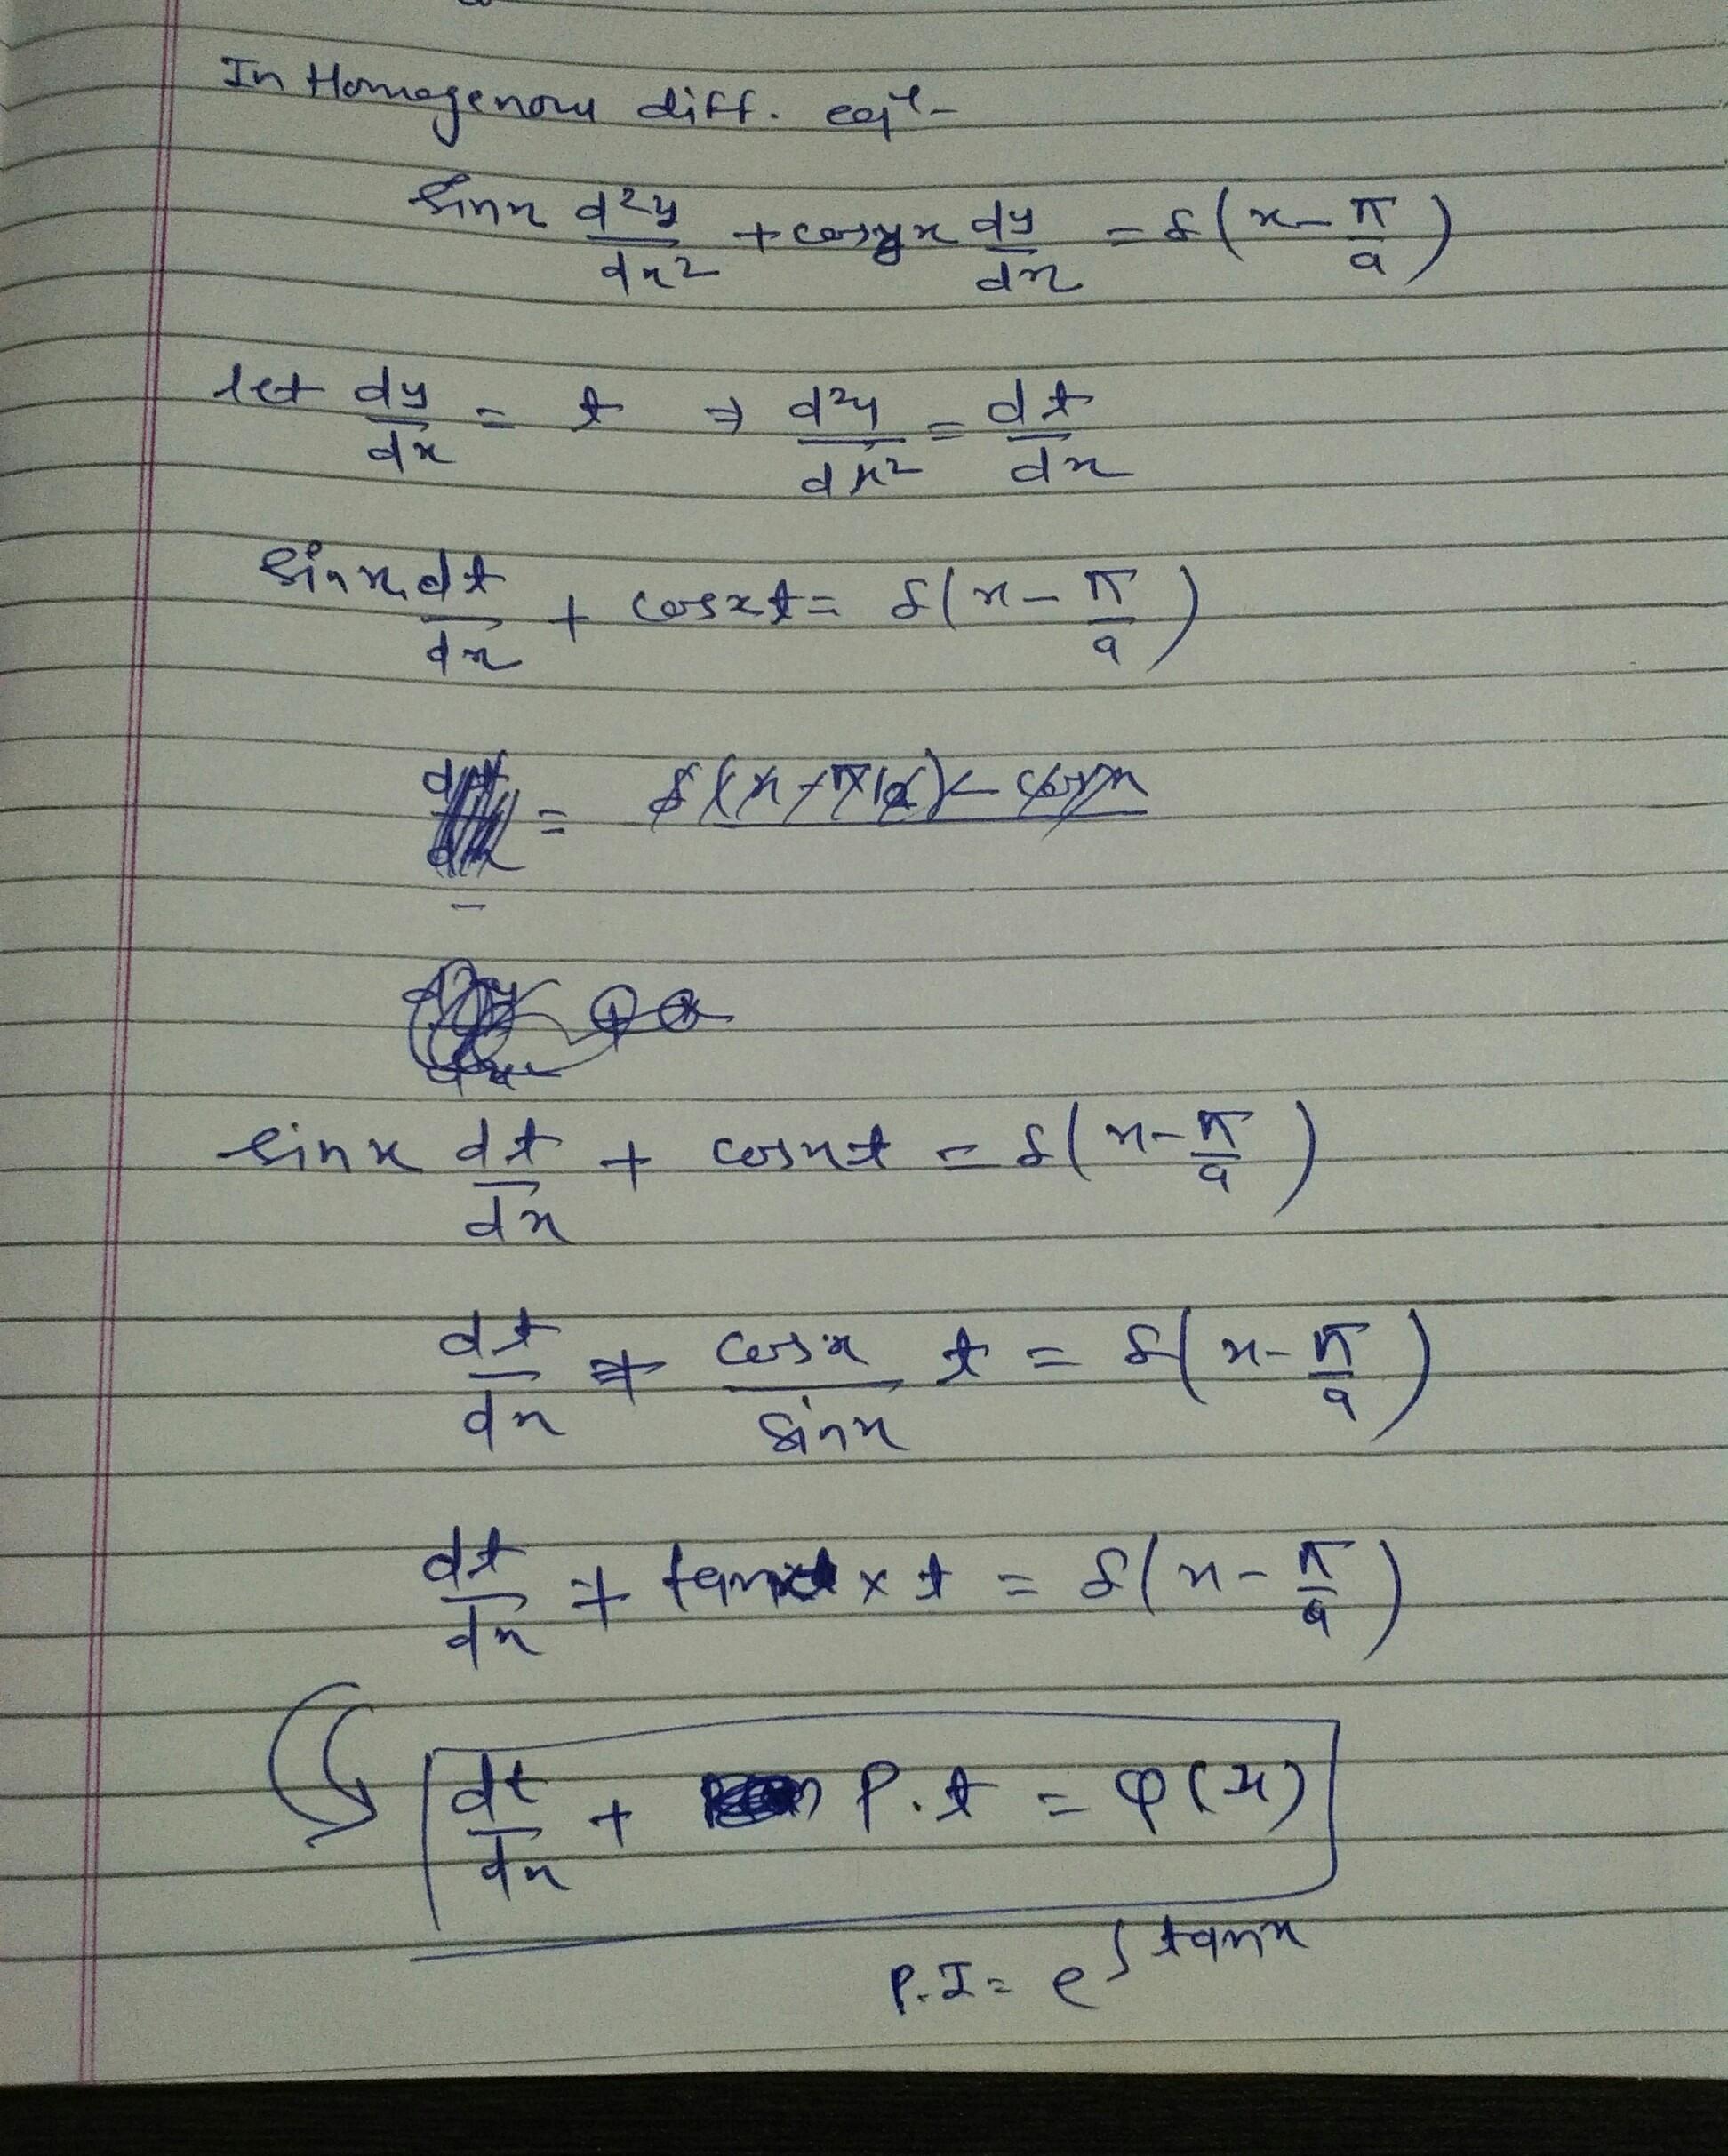 In Homogenous diff. eqⁿ-
sinx d²y/dx² + cosx dy/dx = δ(x - π/a)
let dy/dx = t ⇒ d²y/dx² = dt/dx
sinx dt/dx + cosx t = δ(x - π/a)
= δ(x - π/a) - cosx
sinx dt/dx + cosx t = δ(x - π/a)
dt/dx + cosx/sinx t = δ(x - π/a)
dt/dx + tanx × t = δ(x - π/a)
dt/dx + P.t = φ(x)
P.I = e^∫tanx